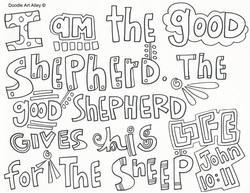 Doodle Art Alley ©
I am the good
Shepherd. The
good Shepherd
gives his life
for the Sheep
John 10:11